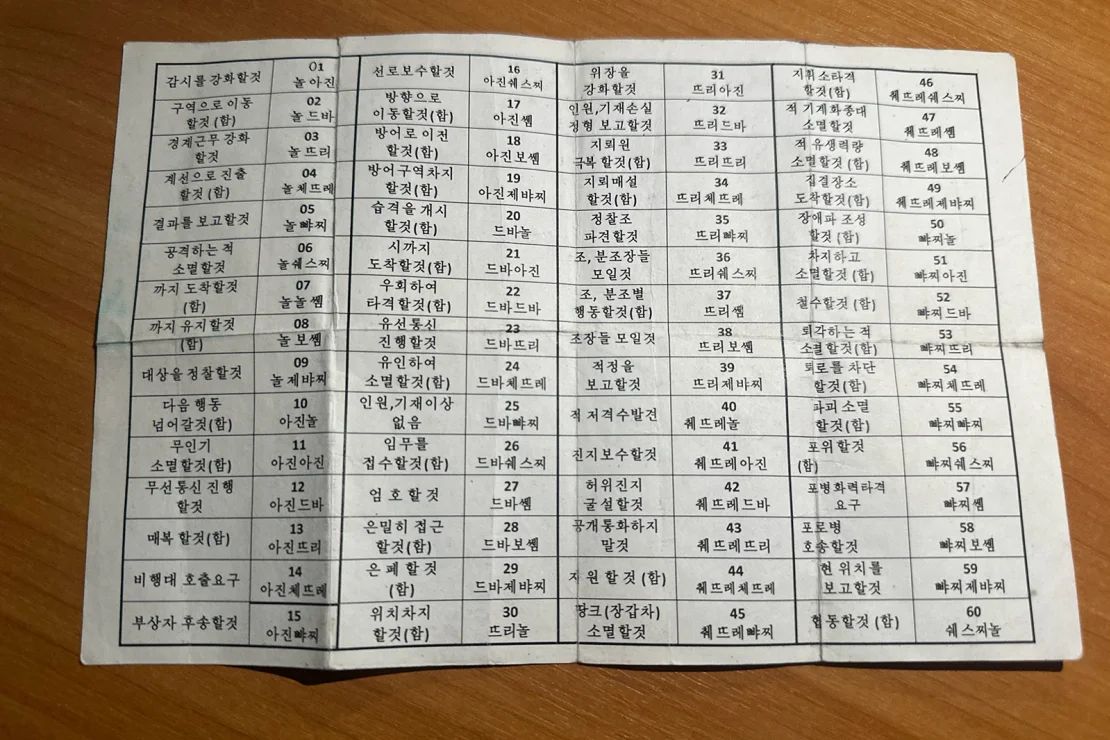 감시를 강화할것
01
놀 아진
구역으로 이동
할것(함)
02
놀 드바
경계근무 강화
할것
03
놀 뜨리
계선으로 진출
할것(함)
04
놀 체뜨레
결과를 보고할것
05
놀 뺘찌
공격하는 적
소멸할것
06
놀쉐스찌
까지 도착할것
(함)
07
놀놀쎔
까지 유지할것
(함)
08
놀 보쎔
대상을 정찰할것
09
놀 제뱌찌
다음 행동
넘어갈것(함)
10
아진놀
무인기
소멸할것(함)
11
아진아진
무선통신 진행
할것
12
아진드바
매복 할것(함)
13
아진뜨리
비행대 호출요구
14
아진체뜨레
부상자 후송할것
15
아진뺘찌
선로보수할것
16
아진쉐스찌
방향으로
이동할것(함)
17
아진쎔
방어로 이전
할것(함)
18
아진보쎔
방어구역차지
할것(함)
19
아진제뱌찌
습격을 개시
할것(함)
20
드바놀
시까지
도착할것(함)
21
드바아진
우회하여
타격할것(함)
22
드바드바
유선통신
진행할것
23
드바뜨리
유인하여
소멸할것(함)
24
드바체뜨레
인원,기재이상
없음
25
드바뺘찌
임무를
접수할것(함)
26
드바쉐스찌
엄 호 할 것
27
드바쎔
은밀히 접근
할것(함)
28
드바보쎔
은 폐 할 것
(함)
29
드바제뱌찌
위치차지
할것(함)
30
뜨리놀
위장을
강화할것
31
뜨리아진
인원,기재손실
정형 보고할것
32
뜨리드바
지뢰원
극복 할것(함)
33
뜨리뜨리
지뢰매설
할것(함)
34
뜨리체뜨레
정찰조
파견할것
35
뜨리뺘찌
조, 분조장들
모일것
36
뜨리쉐스찌
조, 분조별
행동할것(함)
37
뜨리쎔
조장들 모일것
38
뜨리보쎔
적정을
보고할것
39
뜨리제뱌찌
적 저격수발견
40
쉐뜨레놀
진지보수할것
41
쉐뜨레아진
허위진지
굴설할것
42
쉐뜨레드바
공개통화하지
말것
43
쉐뜨레뜨리
지 원 할 것 (함)
44
쉐뜨레체뜨레
땅크(장갑차)
소멸할것
45
쉐뜨레뺘찌
지휘소타격
할것(함)
46
쉐뜨레쉐스찌
적 기계화종대
소멸할것
47
쉐뜨레쎔
적 유생력량
소멸할것(함)
48
쉐뜨레보쎔
집결장소
도착할것(함)
49
쉐뜨레제뱌찌
장애파 조성
할것 (함)
50
뺘찌놀
차지하고
소멸할것 (함)
51
뺘찌아진
철수할것 (함)
52
뺘찌드바
퇴각하는 적
소멸할것(함)
53
뺘찌뜨리
퇴로를 차단
할것(함)
54
뺘찌체뜨레
파괴 소멸
할것(함)
55
뺘찌뺘찌
포위할것
(함)
56
뺘찌쉐스찌
포병화력타격
요구
57
뺘찌쎔
포로병
호송할것
58
뺘찌보쎔
현 위치를
보고할것
59
뺘찌제뱌찌
협동할것 (함)
60
쉐스찌놀